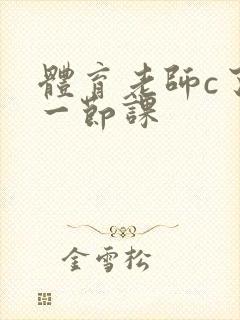 體育老師c了
一節課
金雪松